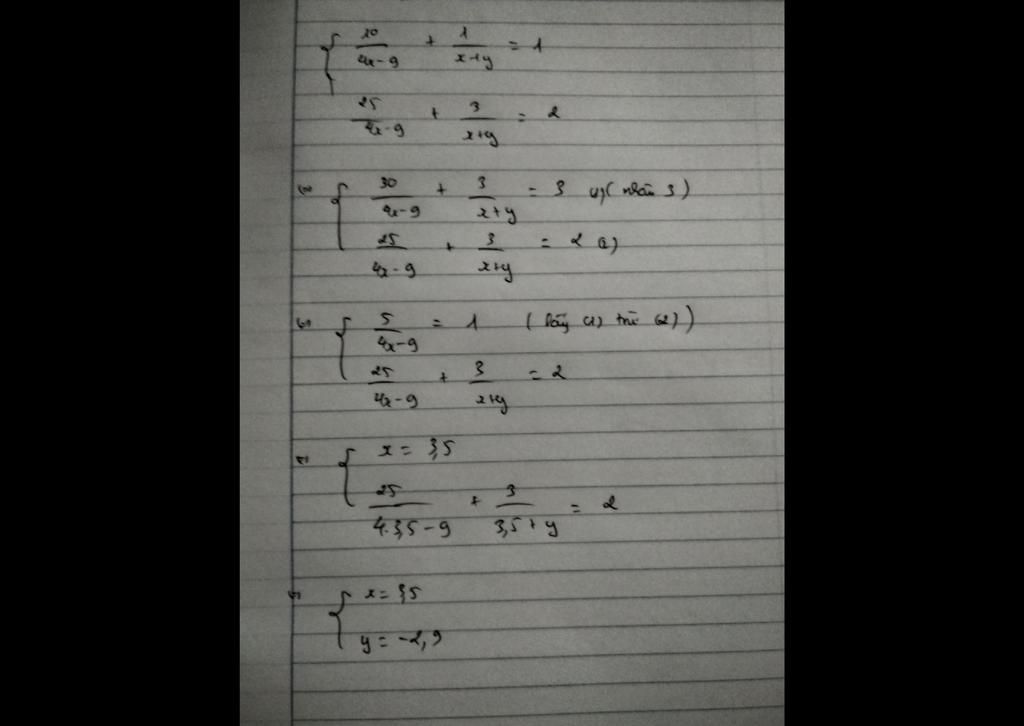 { 10/(4x-9) + 1/(x+y) = 1
25/(4x-9) + 3/(x+y) = 2
⇔ { 30/(4x-9) + 3/(x+y) = 3 (1) (nhân 3)
25/(4x-9) + 3/(x+y) = 2 (2)
⇔ { 5/(4x-9) = 1 (lấy (1) trừ (2))
25/(4x-9) + 3/(x+y) = 2
⇔ { x = 3,5
25/(4.3,5-9) + 3/(3,5+y) = 2
⇔ { x = 3,5
y = -2,9